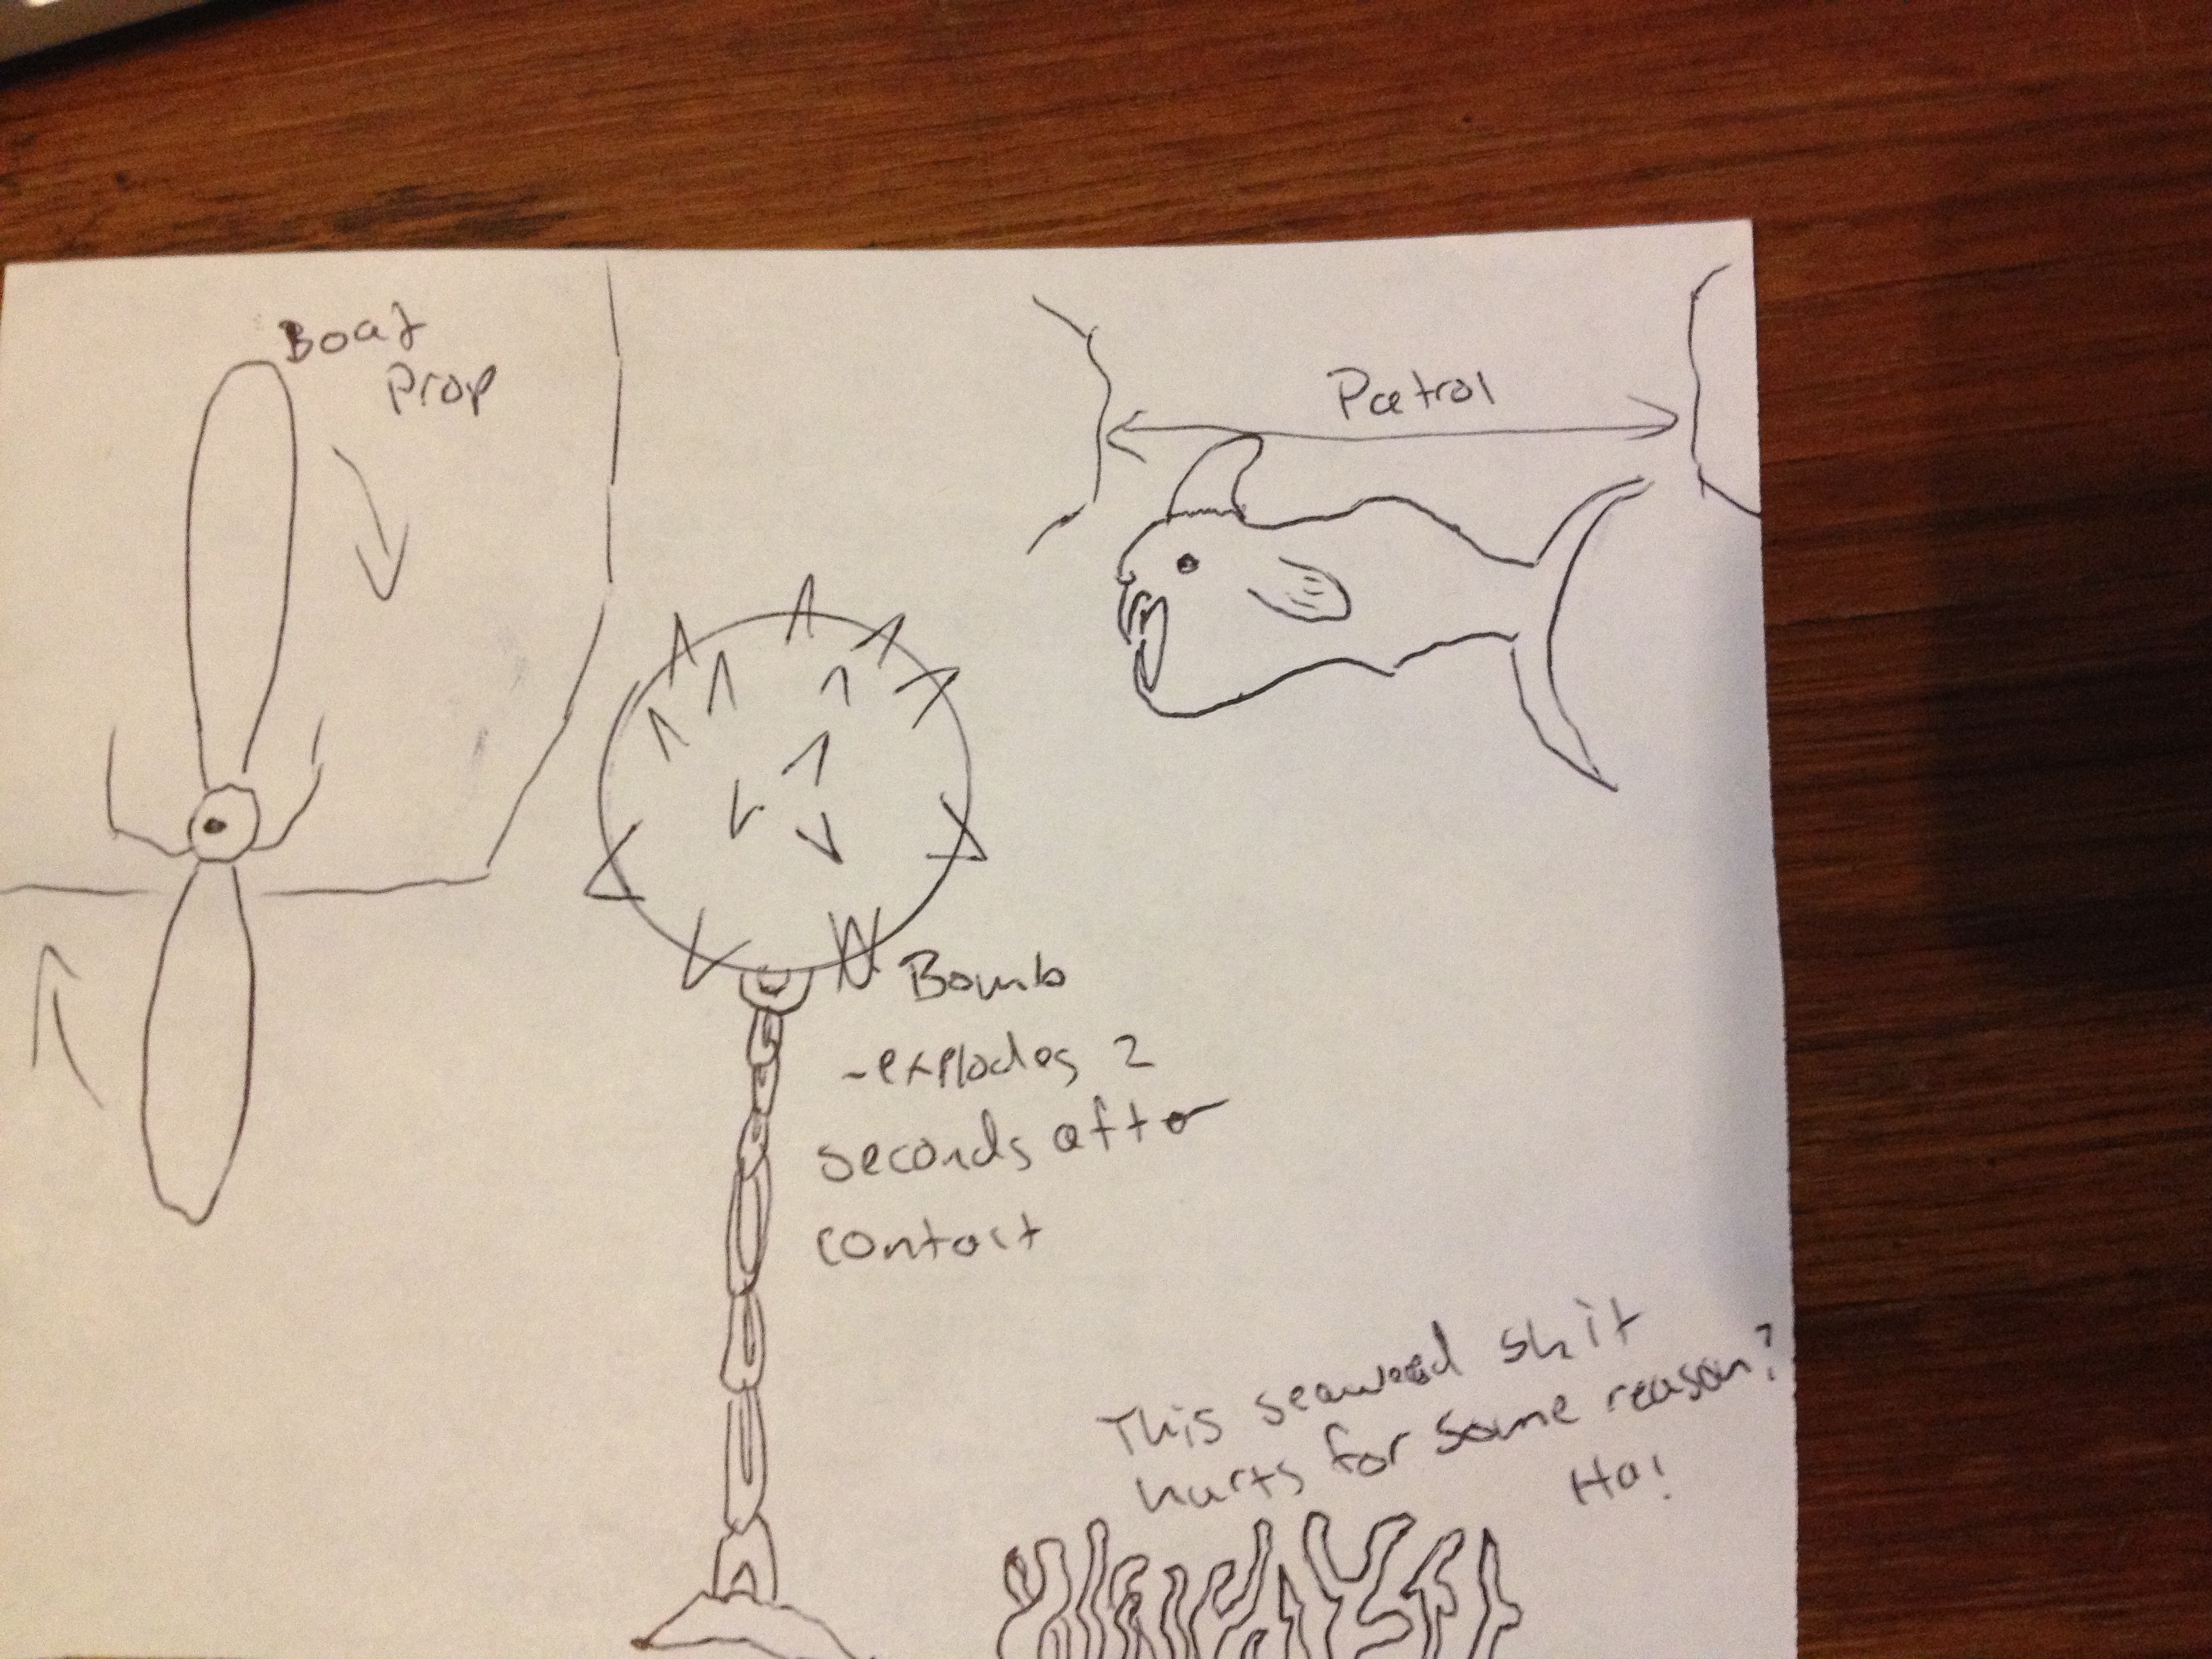 Boat
Prop
Patrol
Bomb
-explodes 2
seconds after
contact
This seaweed shit
hurts for some reason?
Ha!